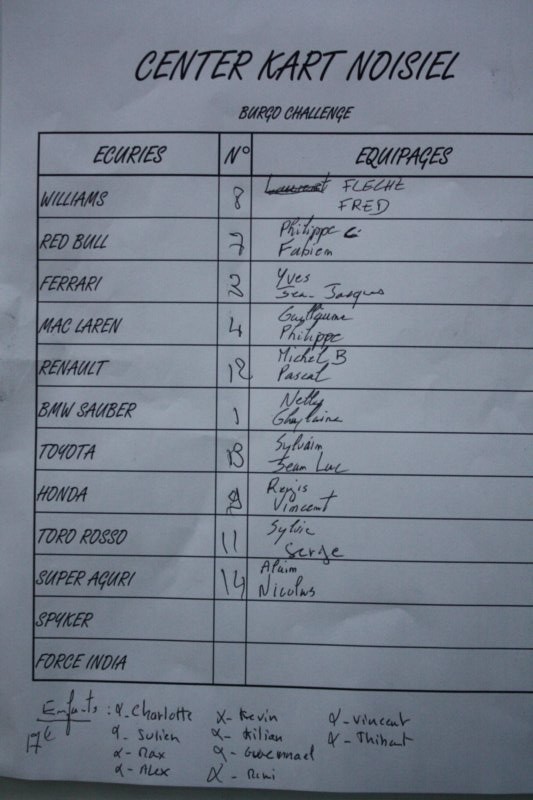 CENTER KART NOISIEL
BURGO CHALLENGE
ECURIES N° EQUIPAGES
WILLIAMS 8 FLECHE
FRED
RED BULL 7 Philippe C
Fabien
FERRARI 2 Yves
Jea-Jacques
MAC LAREN 4 Guillaume
Philippe
RENAULT 12 Michel B
Pascal
BMW SAUBER 1 Nelly
Ghylaine
TOYOTA 13 Sylvain
Jean Luc
HONDA Regis
Vincent
TORO ROSSO 11 Sylvie
Serge
SUPER AGURI 14 Alain
Nicolas
SPYKER
FORCE INDIA
Enfants : α-Charlotte α-Kevin α-Vincent
17€ α-Julien α-Kilian α-Thibaut
α-Max α-Gwennael
α-Alex α-Rémi